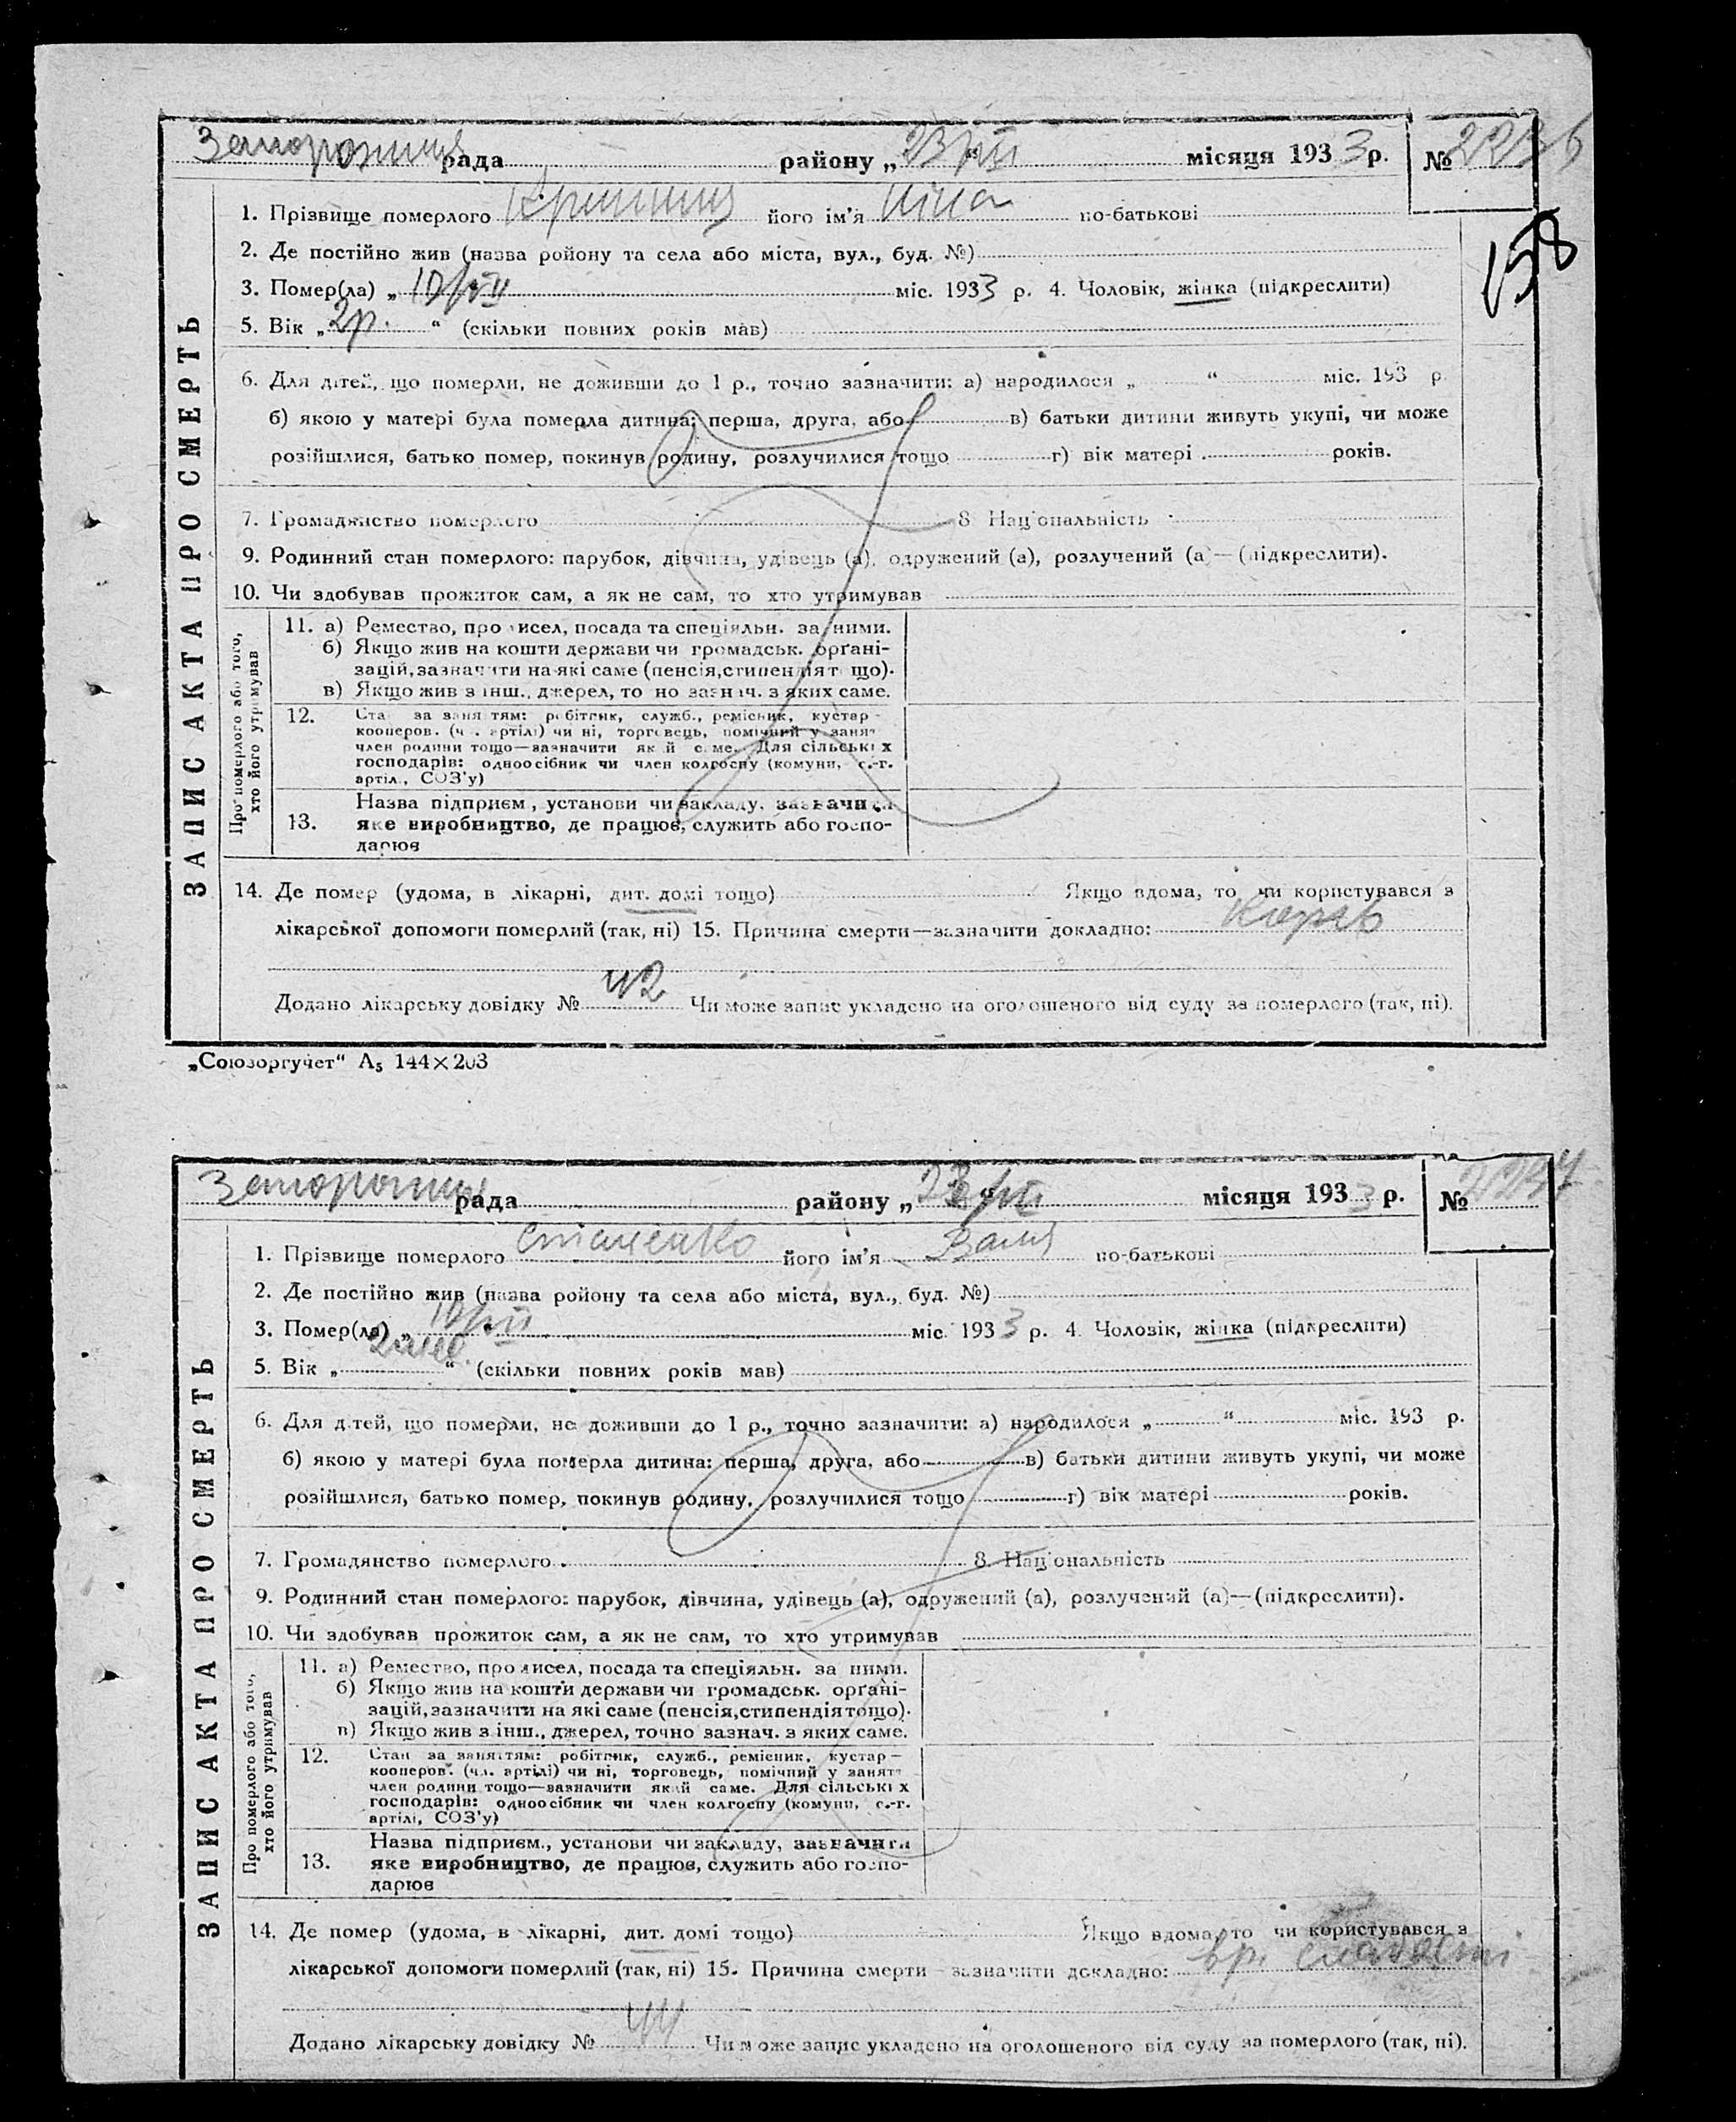 рада району „23/VII“ місяця 1933 р. №
158
ЗАПИС АКТА ПРО СМЕРТЬ
1. Прізвище померлого його ім'я Ніна по-батькові
2. Де постійно жив (назва ройону та села або міста, вул., буд. №)
3. Помер(ла) „10/VII міс. 1933 р. 4. Чоловік, жінка (підкреслити)
5. Вік „2р. “ (скільки повних років мав)
6. Для дітей, що померли, не доживши до 1 р., точно зазначити: а) народилося „ “ міс. 193 р.
б) якою у матері була померла дитина: перша, друга, або в) батьки дитини живуть укупі, чи може
розійшлися, батько помер, покинув родину, розлучилися тощо г) вік матері років.
7. Громадянство померлого 8 Національність
9. Родинний стан померлого: парубок, дівчина, удівець (а), одружений (а), розлучений (а)—(підкреслити).
10. Чи здобував прожиток сам, а як не сам, то хто утримував
Про померлого або того, хто його утримував
11. а) Ремество, промисел, посада та спеціяльн. за ними.
б) Якщо жив на кошти держави чи громадськ. орґані-
зацій, зазначити на які саме (пенсія, стипендія тощо).
в) Якщо жив з інш., джерел, точно зазнач. з яких саме.
12. Стан за заняттям: робітник, служб., ремісник, кустар—
кооперов. (чл. артілі) чи ні, торговець, помічний у занят
член родини тощо—зазначити який саме. Для сільських
господарів: одноосібник чи член колгоспу (комуни, с.-г.
артіл., СОЗ'у)
13. Назва підприєм., установи чи закладу, зазначити
яке виробництво, де працює, служить або госпо-
дарює
14. Де помер (удома, в лікарні, дит. домі тощо) Якщо вдома, то чи користувався з
лікарської допомоги померлий (так, ні) 15. Причина смерти—зазначити докладно: Корь
Додано лікарську довідку № 42 Чи може запис укладено на оголошеного від суду за померлого (так, ні).
„Союзоргучет“ А₅ 144×203
рада району „23/VII“ місяця 1933 р. №
ЗАПИС АКТА ПРО СМЕРТЬ
1. Прізвище померлого його ім'я Валя по-батькові
2. Де постійно жив (назва ройону та села або міста, вул., буд. №)
3. Помер(ла) „10/VII міс. 1933 р. 4. Чоловік, жінка (підкреслити)
5. Вік „ “ (скільки повних років мав)
6. Для дітей, що померли, не доживши до 1 р., точно зазначити: а) народилося „ “ міс. 193 р.
б) якою у матері була померла дитина: перша, друга, або в) батьки дитини живуть укупі, чи може
розійшлися, батько помер, покинув родину, розлучилися тощо г) вік матері років.
7. Громадянство померлого 8. Національність
9. Родинний стан померлого: парубок, дівчина, удівець (а), одружений (а), розлучений (а)—(підкреслити).
10. Чи здобував прожиток сам, а як не сам, то хто утримував
Про померлого або того, хто його утримував
11. а) Ремество, промисел, посада та спеціяльн. за ними.
б) Якщо жив на кошти держави чи громадськ. орґані-
зацій, зазначити на які саме (пенсія, стипендія тощо).
в) Якщо жив з інш., джерел, точно зазнач. з яких саме.
12. Стан за заняттям: робітник, служб., ремісник, кустар—
кооперов. (чл. артілі) чи ні, торговець, помічний у занят
член родини тощо—зазначити який саме. Для сільських
господарів: одноосібник чи член колгоспу (комуни, с.-г.
артілі, СОЗ'у)
13. Назва підприєм., установи чи закладу, зазначити
яке виробництво, де працює, служить або госпо-
дарює
14. Де помер (удома, в лікарні, дит. домі тощо) Якщо вдома, то чи користувався з
лікарської допомоги померлий (так, ні) 15. Причина смерти—зазначити докладно: вр.
Додано лікарську довідку № Чи може запис укладено на оголошеного від суду за померлого (так, ні).